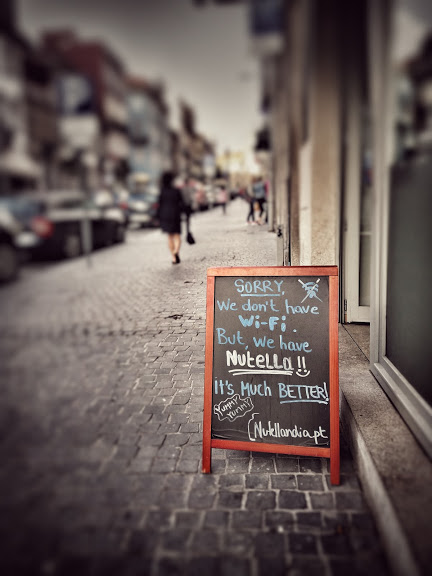 SORRY,
We don't have
Wi-Fi.
But, we have
Nutella!!
It's Much BETTER!
YUMMY
YUMMY
Nutellandia.pt